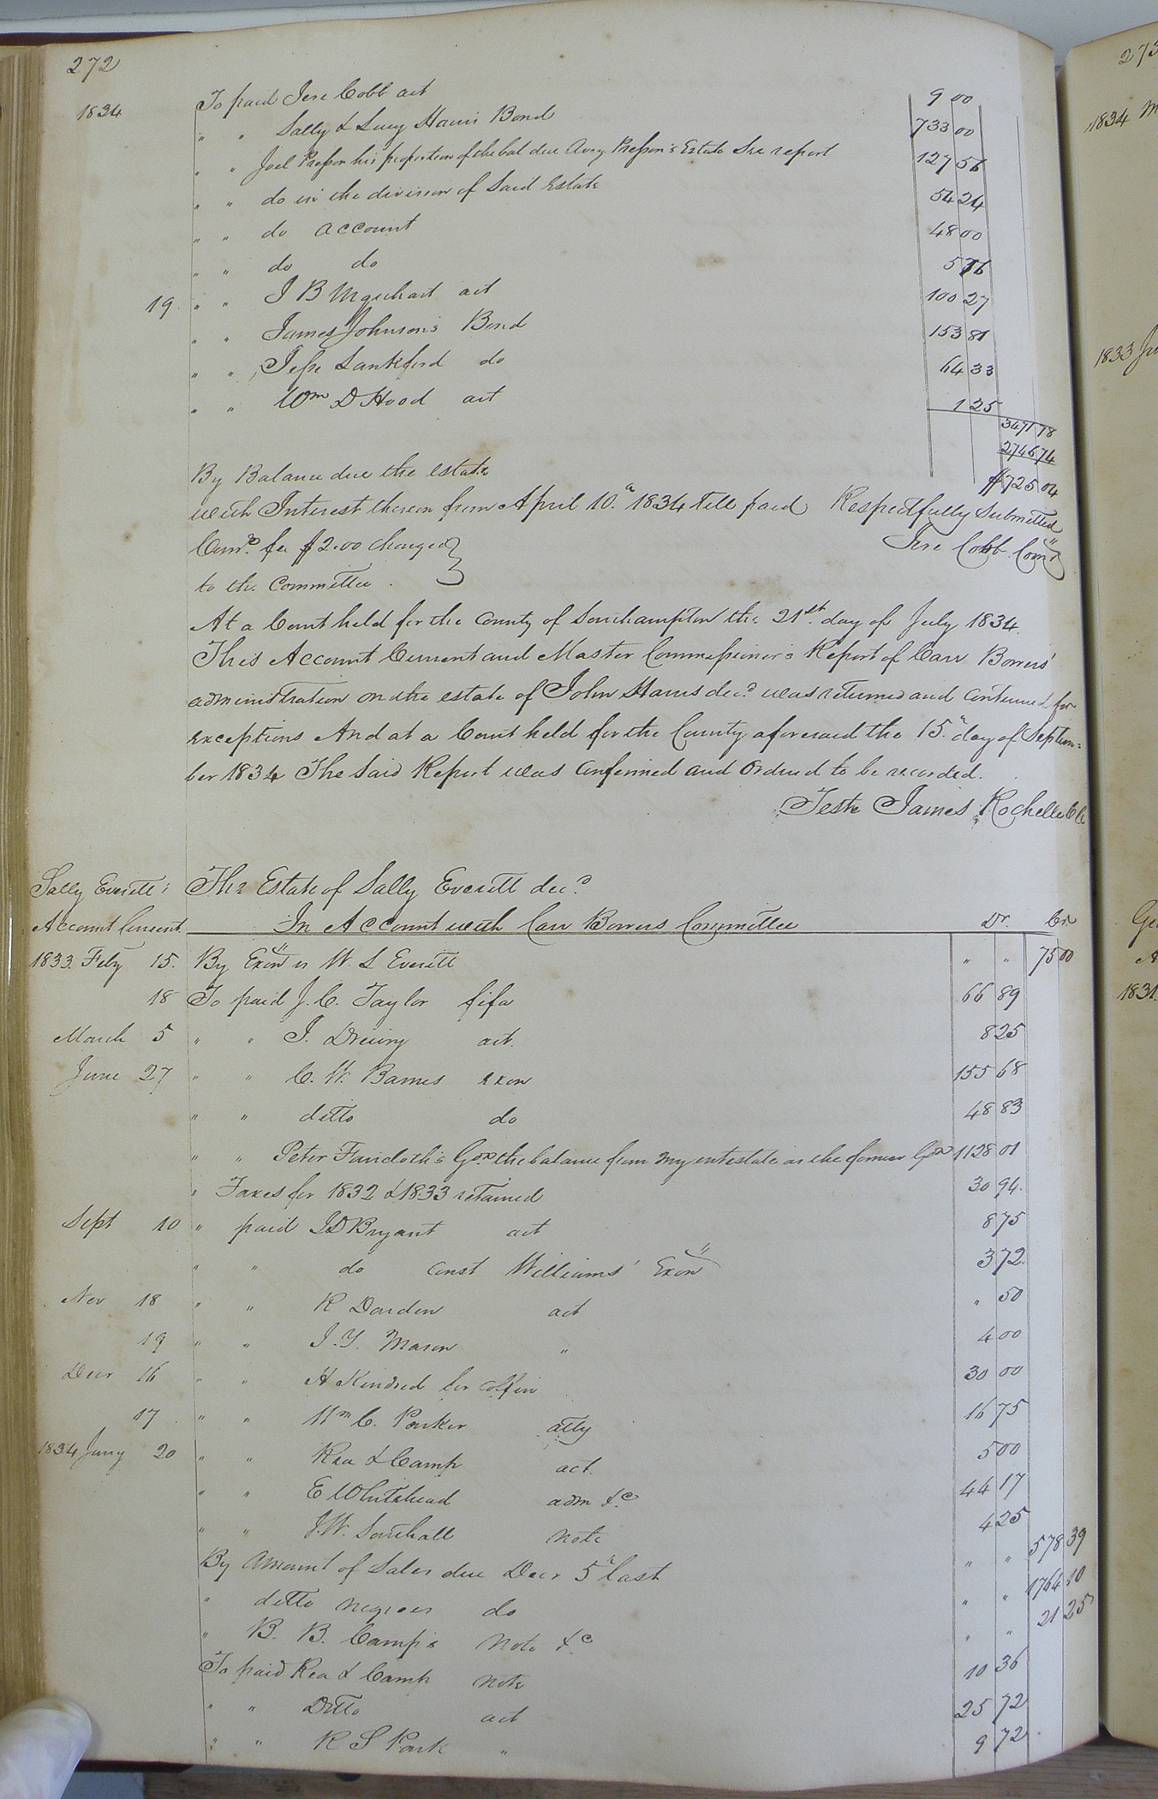 272
1834 To paid Jere Cobb act 9 00
" " Sally & Lucy Harris Bond 733 00
" " Joel Presson his proportion of the bal due Avey Presson's Estate See report 127 56
" " do in the division of Said Estate 54 24
" " do account 48 00
" " do do 5 76
19 " " J B Urquhart act 100 27
" " James Johnson's Bond 153 81
" " Jesse Lankford do 64 33
" " Wm D Hood act 1 25
3471 78
2746 74
By Balance due the estate $725 04
with Interest thereon from April 10th 1834 till paid Respectfully Submitted
Comr. fee $2.00 charged Jere Cobb Comr
to the Committee.
At a Court held for the County of Southampton the 21st day of July 1834.
This Account Current and Master Commissioner's Report of Carr Bowers'
administration on the estate of John Harris decd was returned and continued for
exceptions And at a Court held for the County aforesaid the 15th day of Septem=
ber 1834 The Said Report was confirmed and Ordered to be recorded.
Teste James Rochelle CC
Sally Everett's The Estate of Sally Everett decd
Account Current In Account with Carr Bowers Committee Dr. Cr.
1833 Feby 15. By Exon vs W L Everett " " 75 00
18 To paid J. C. Taylor fifa 66 89
March 5 " " J. Drewry act. 8 25
June 27 " " C. W. Barnes exon 155 68
" " ditto do 48 83
" " Peter Faircloth's Gdn the balance from my intestate as the former Gdn 1128 01
" Taxes for 1832 & 1833 retained 30 94.
Sept 10 " paid J D Bryant act 8 75
" " do const Williams' Exon 3 72.
Nov 18 " " R Darden act " 50
19 " " J. Y. Mason " 4 00
Decr 16 " " H Kindred for coffin 30 00
17 " " Wm C. Parker atty 16 75
1834 Jany 20 " " Rea & Camp act. 5 00
" " E Whitehead adm &c 44 17
" " J. W. Southall note 4 25
By Amount of Sales due Decr 5th last " " 578 39
" ditto negroes do " " 1764 10
" B. B. Camp's note &c " " 21 25
To paid Rea & Camp note 10 36
" " Ditto act 25 72
" " R S Park " 9 72
273
1834 M
1833 Ja
1831.